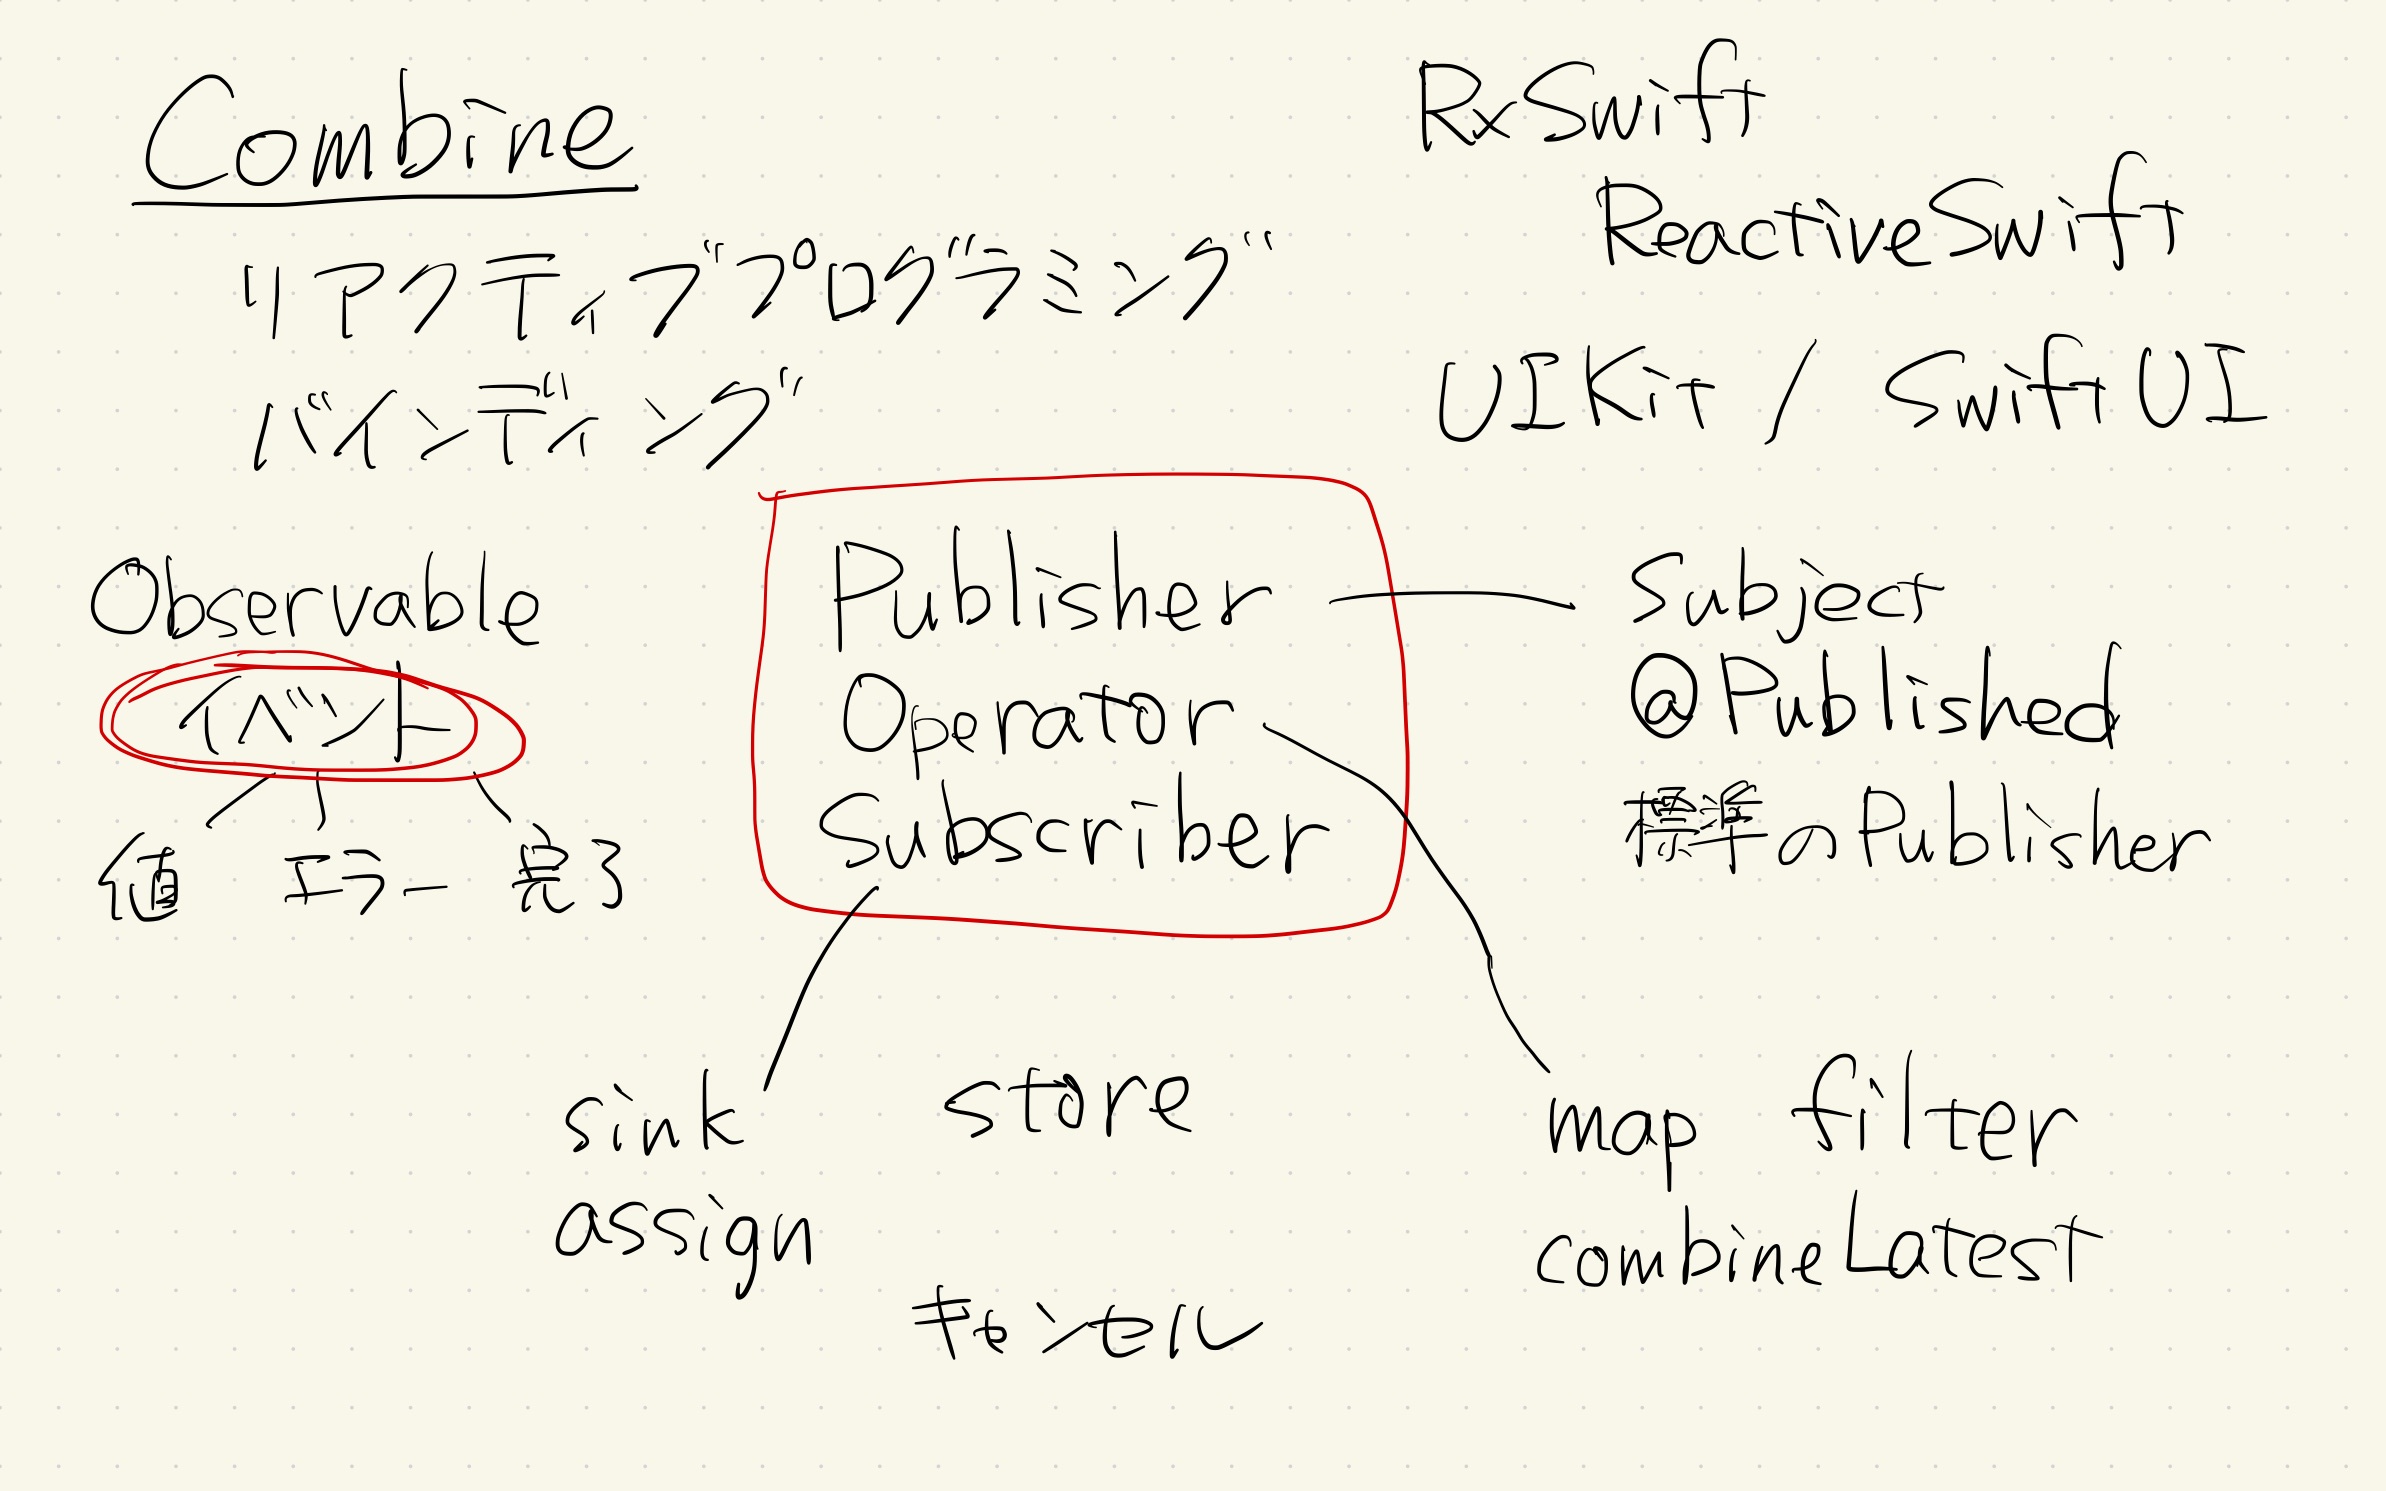 Combine
リアクティブプログラミング
バインディング
RxSwift
ReactiveSwift
UIKit / SwiftUI
Observable
イベント
値 エラー 完了
Publisher
Operator
Subscriber
Subject
@Published
標準のPublisher
sink
assign
store
キャンセル
map filter
combineLatest